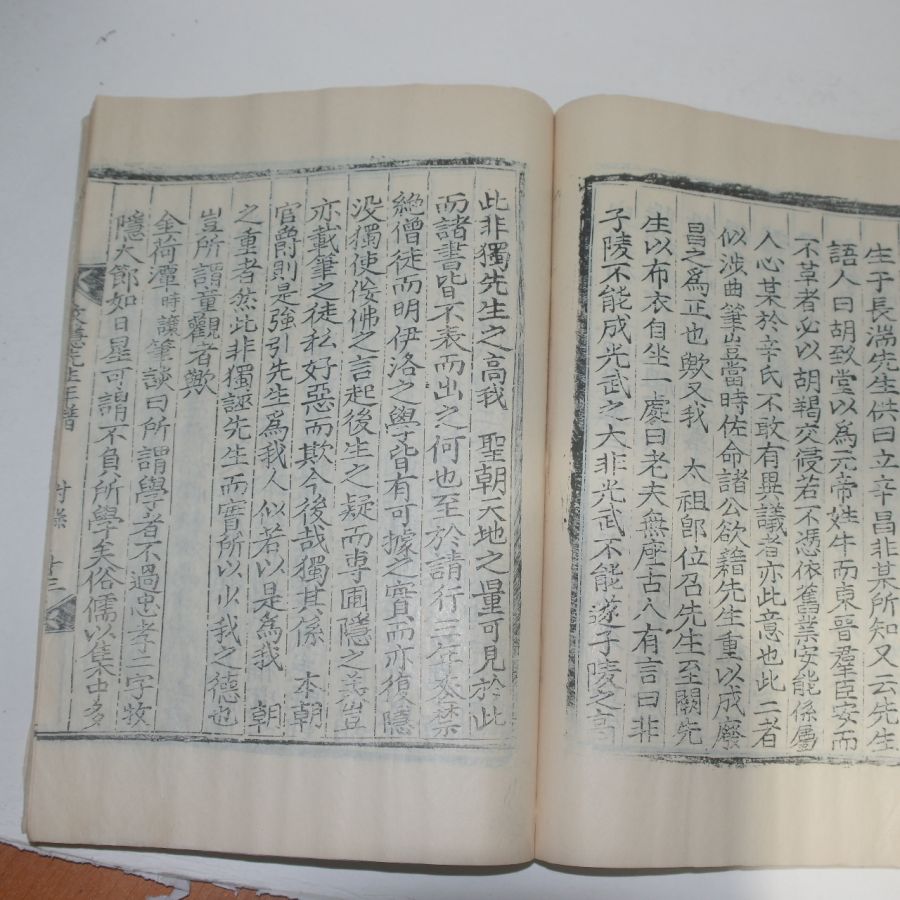 生于長湍先生供曰立辛昌非某所知又云先生
語人曰胡致堂以爲元帝姓牛而東晉羣臣安而
不革者必以胡羯交侵若不憑依舊業安能係屬
人心某於辛氏不敢有異議者亦此意也此二者
似涉曲筆豈當時佐命諸公欲籍先生重以成廢
昌之爲正也歟又我 太祖卽位召先生至闕先
生以布衣自坐一處曰老夫無座古人有言曰非
子陵不能成光武之大非光武不能遂子陵之高
此非獨先生之高我 聖朝天地之量可見於此
而諸書皆不表而出之何也至於請行三年喪禁
絶僧徒而明伊洛之學皆有可據之實而亦復隱
没獨使佞佛之言起後生之疑而専圃隱之美豈
亦載筆之徒私好惡而欺今後哉獨其係 本朝
官爵則是強引先生爲我人似若以是爲我 朝
之重者然此非獨誣先生而實所以小我之德也
豈所謂童觀者歟
金荷潭時讓筆談曰所謂學者不過忠孝二字牧
隱大節如日星可謂不負所學矣俗儒以集中多
先生年譜 附錄 十三